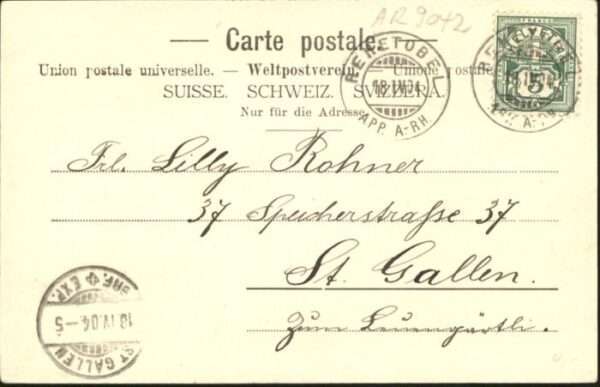 AR 9042
— Carte postale. —
Union postale universelle. — Weltpostverein. — Unione postale
SUISSE. SCHWEIZ. SVIZZERA.
Nur für die Adresse.
REHETOBEL
18.IV.04
APP. A-RH.
HELVETIA
FRANCO
5
Frl. Lilly Rohner
37 Speicherstraße 37
St. Gallen.
Zum Leuengärtli.
BRF. EXP.
18 IV 04 – 5
ST GALLEN